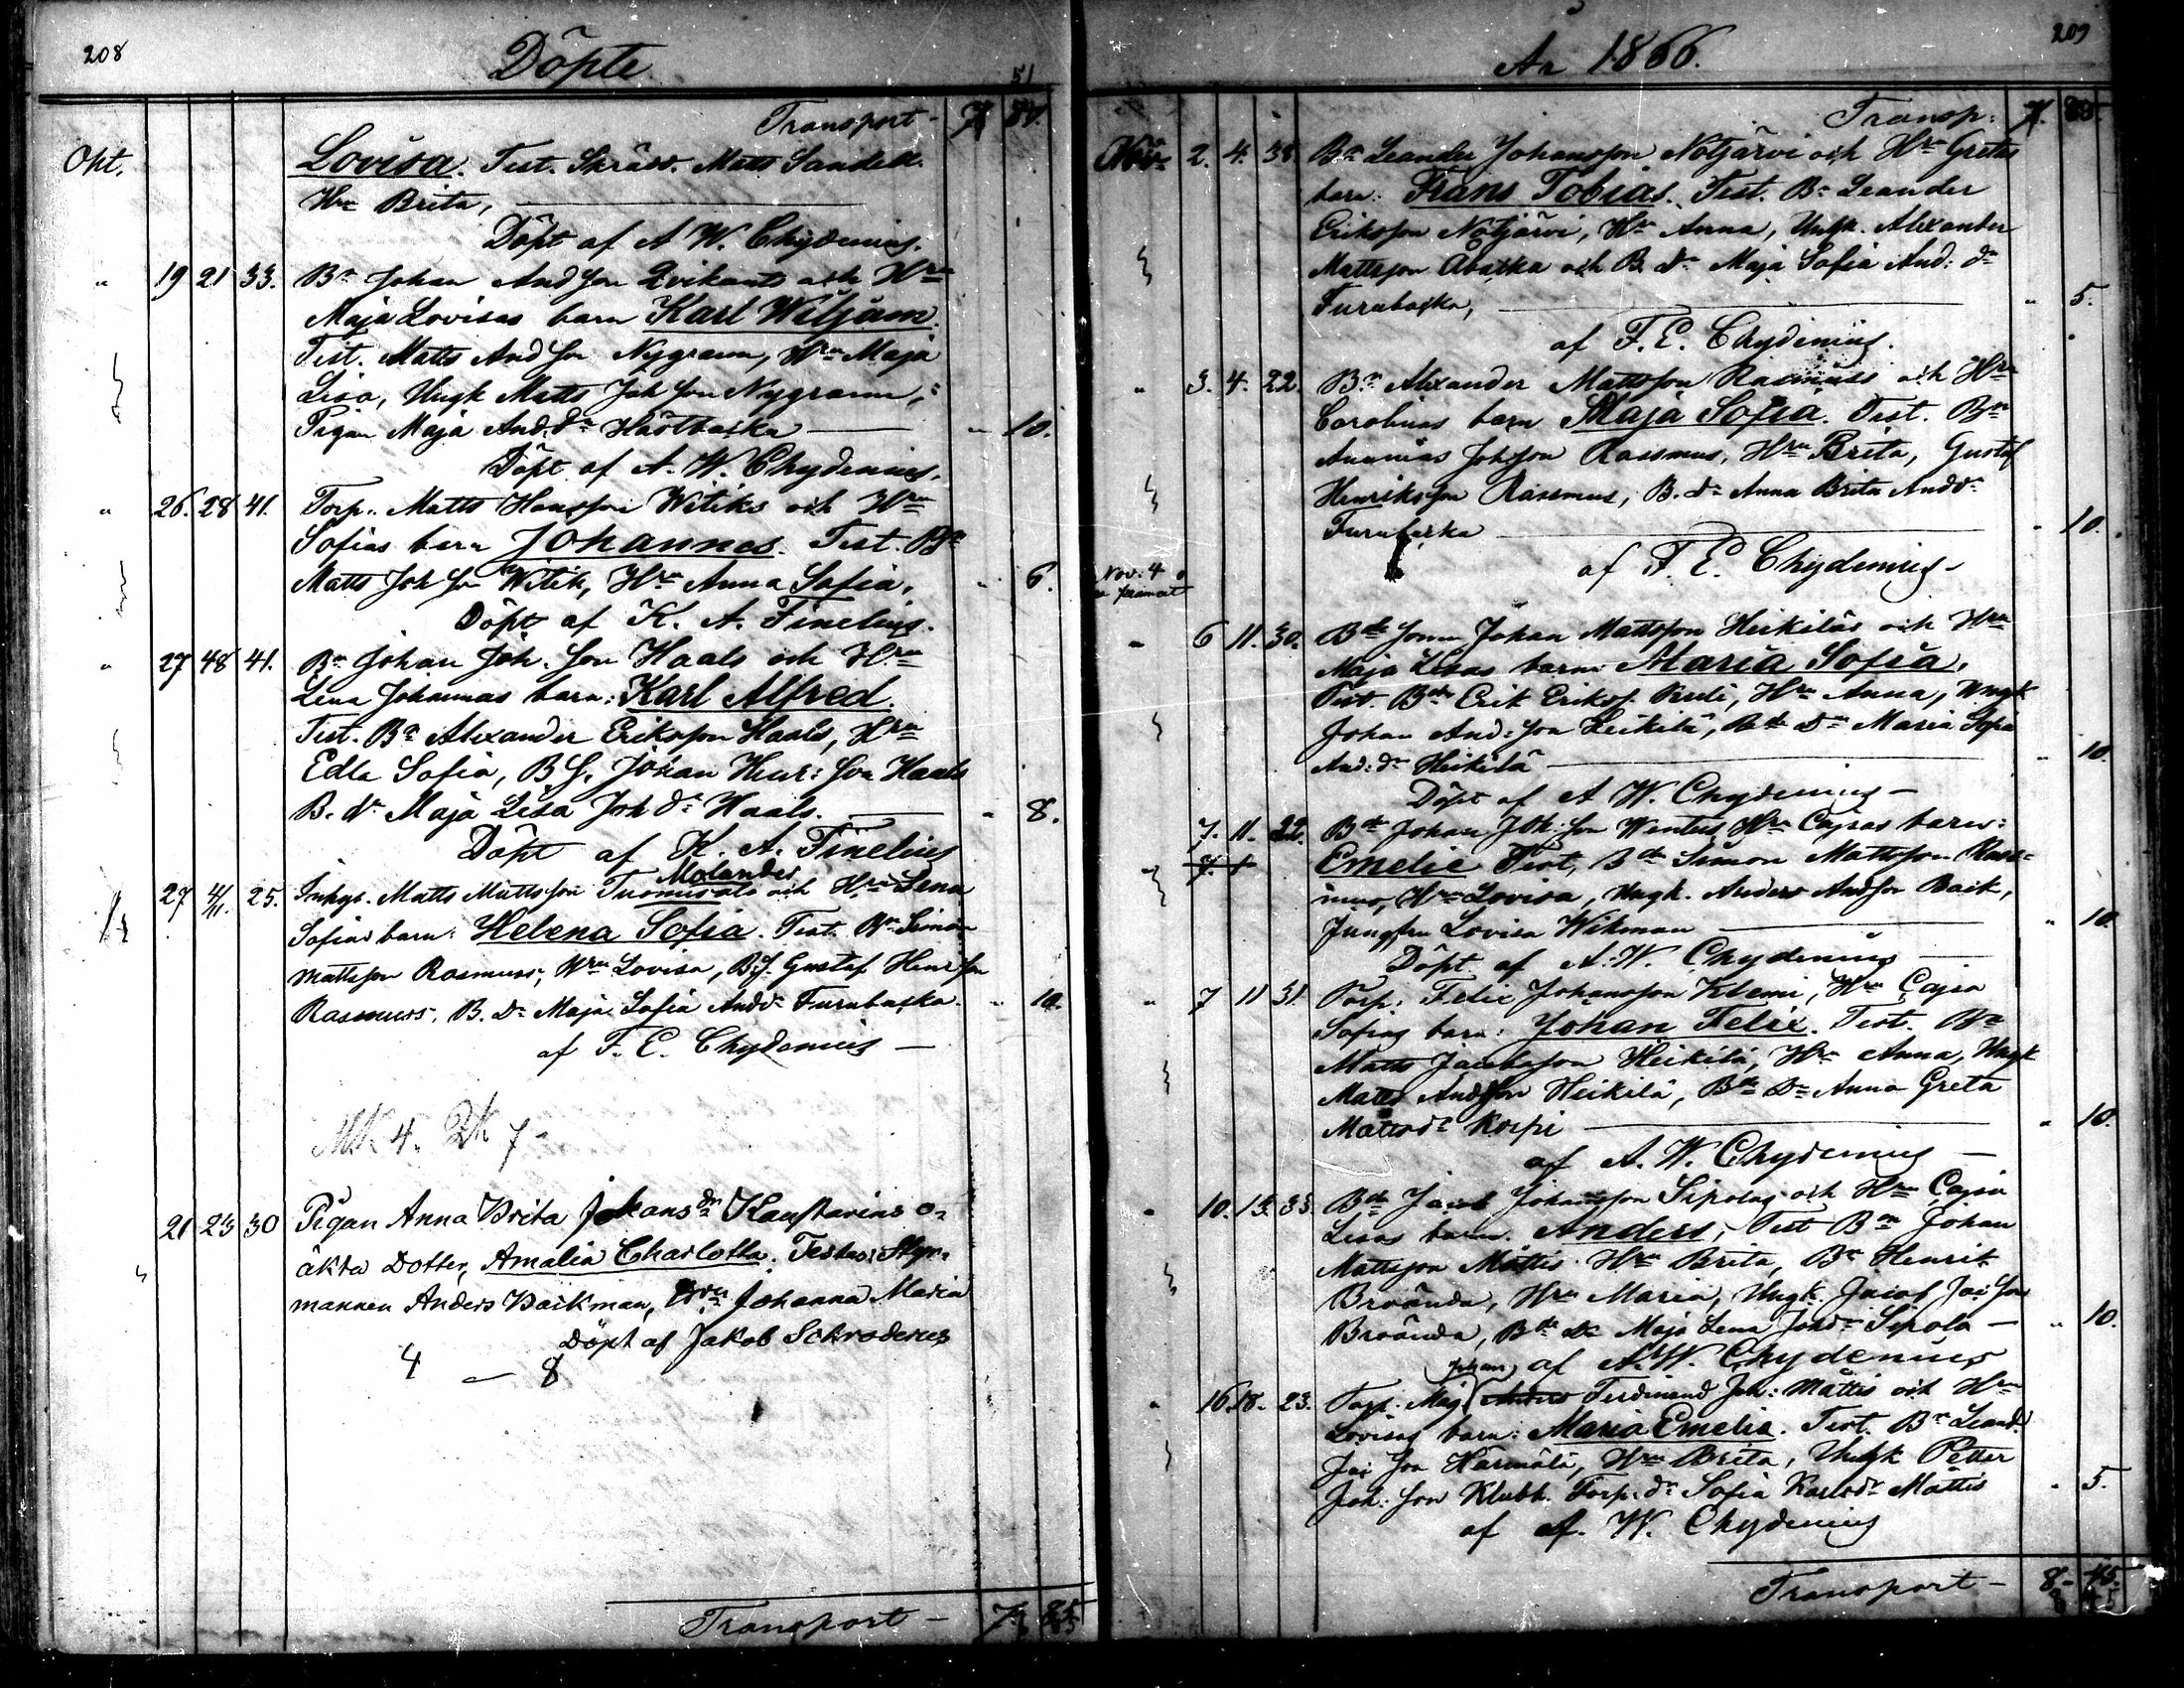 208
Döpte
51
Transport - 7
Okt.
Lovisa. Test. Skrädd. Matts Sandell.
Hru Brita,
Döpt af A W. Chydenius.
" 19 21 33. Bn Johan Andson Qvikants och Hru
Maja Lovisas barn Karl Wiljam.
Test. Matts Andson Nygrann, Hru Maja
Lisa, Ungk Matts Johson Nygrann,
Pigan Maja And.dr - " 10.
Döpt af A. W. Chydenius.
" 26. 28 41. Torp. Matts Hansson Witiks och Hru
Sofias barn Johannes. Test. Bn
Matts Johson Witik, Hru Anna Sofia, " 6.
Döpt af K. A. Finelius.
" 27 48 41. Bn Johan Joh. son Haals och Hru
Lena Johannas barn: Karl Alfred.
Test. Bn Alexander Eriksson Haals, Hru
Edla Sofia, BS. Johan Henr: son Haals
B. dr Maja Lisa Joh dr Haals. - " 8.
Döpt af K. A. Finelius
Molander
27 4/11. 25. Inhys. Matts Mattsson Tuomisalo och Hru Lena
Sofias barn: Helena Sofia. Test. Bn Simon
Mattsson Rasmuss, Hru Lovisa, B.S. Gustaf Henrson
Rasmuss, B. Dr Maja Sofia Anddr Furubacka. " 10.
af F. E. Chydenius -
MK 4. QK 7
21 23 30 Pigan Anna Brita Johansdr Kaustarins o-
äkta Dotter, Amalia Charlotta. Testes: Styr-
mannen Anders Backman, Hru Johanna Maria
Döpt af Jakob Schroderus
4 - 8
Transport - 7 85
209
År 1866.
Transp: 7.
Nov. 2. 4. 38. Bn Leander Johansson Notjärvi och Hru Gretas
barn: Frans Tobias. Test. Bn Leander
Eriksson Notjärvi, Hru Anna, Ungk. Alexander
Mattsson Åbacka och B. dr Maja Sofia And: dr
Furubacka, - " 5.
af F. E. Chydenius.
" 3. 4. 22. Bn Alexander Mattsson Rasmuss och Hru
Carolinas barn Maja Sofia. Test. Bn
Ananias Johsson Rassmus, Hru Brita, Gustaf
Henriksson Rassmus, B. dr Anna Brita Anddr
Furubacka - " 10.
af F. E. Chydenius -
Nov. 4
" 6 11. 30. Bde sonen Johan Mattsson Heikiläs och Hru
Maja Lisas barn: Maria Sofia.
Test. Bde Erik Erikss. , Hru Anna, Ungk
Johan And: son Heikilä, Bde Dr Maria Sofia
And: dr Heikilä - " 10.
Döpt af A W. Chydenius -
7. 11. 22. Bde Johan Joh. son Wentus Hru Cajsas barn:
Emelie Test, Bde Simon Mattsson Rass-
mus, Hru Lovisa, Ungk. Anders Andson Back,
Jungfru Lovisa Wikman - " 10.
Döpt af A. W. Chydenius -
" 7 11 31. Torp. Felix Johansson Klemi, Hru Cajsa
Sofias barn: Johan Felix. Test. Bn
Matts Jacobsson Heikilä, Hru Anna, Ungk
Matts Andsson Heikilä, Bde Dr Anna Greta
Mattsdr Korpi - " 10.
af A. W. Chydenius -
" 10. 13. 33. Bde Jacob Johansson Sipolas och Hru Cajsa
Lisas barn. Anders, Test Bn Johan
Mattsson Mattis Hru Brita, Bn Henrik
Broända, Hru Maria, Ungk. Jacob Jac son
Broända, Bde Dr Maja Lena Johdr Sipola - " 10.
af A. W. Chydenius
Johan
" 16. 18. 23. Torp. Måg Anders Ferdinand Joh: Mattis och Hru
Lovisas barn: Maria Emelie. Test. Bn Leand.
Jac son Härmälä, Hru Brita, Ungk Petter
Joh: son Klubb. Torp. dr Sofia Karlsdr Mattis " 5.
af A. W. Chydenius
Transport - 8 - 45.